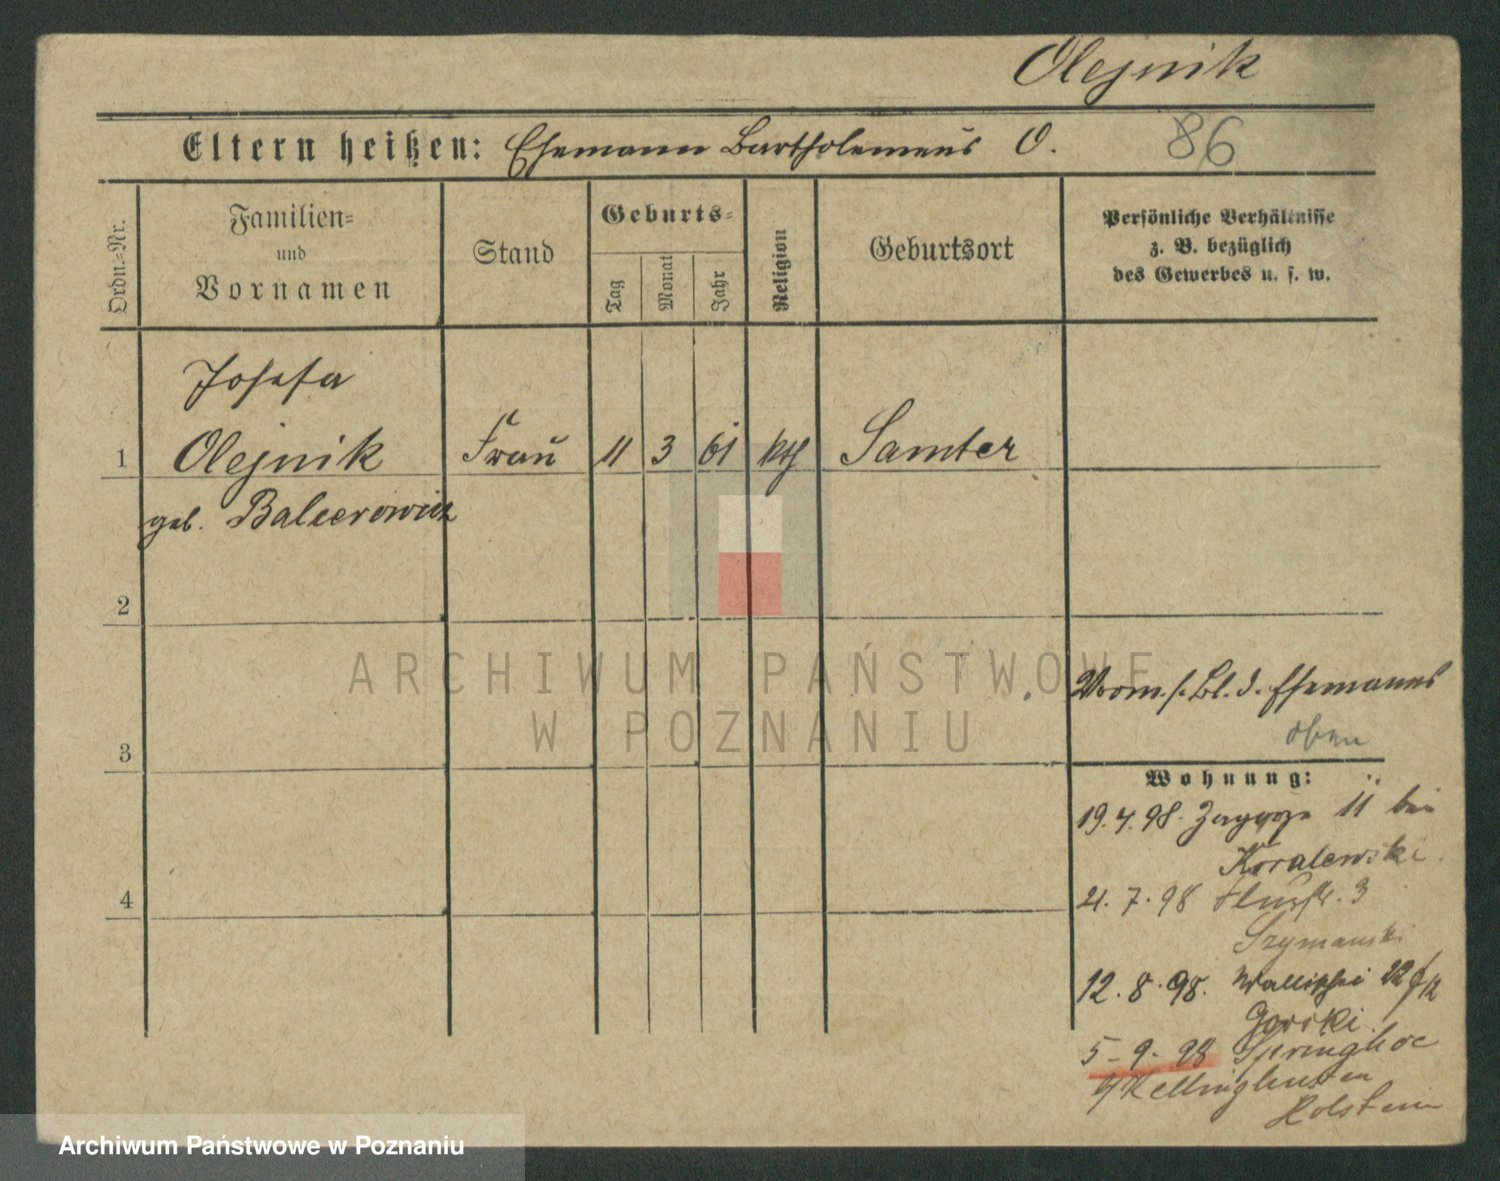 Olejnik
Eltern heißen: Ehemann Bartholemeus O. 86
Ordn.-Nr.
Familien-
und
Vornamen
Stand
Geburts-
Tag
Monat
Jahr
Religion
Geburtsort
Persönliche Verhältnisse
z. B. bezüglich
des Gewerbes u. s. w.
Josefa
1 Olejnik Frau 11 3 61 kth Samter
geb. Balcerowicz
2
ARCHIWUM PAŃSTWOWE
W POZNANIU
Bl. d. Ehemannes
oben
3
Wohnung:
19.4.98. Zagorze 11 bei
Koralewski
4
21.7.98 3
Szymanski
12.8.98. Wallischei
Gorski
5-9-98 Springhoe
Kellinghusen
Holstein
Archiwum Państwowe w Poznaniu